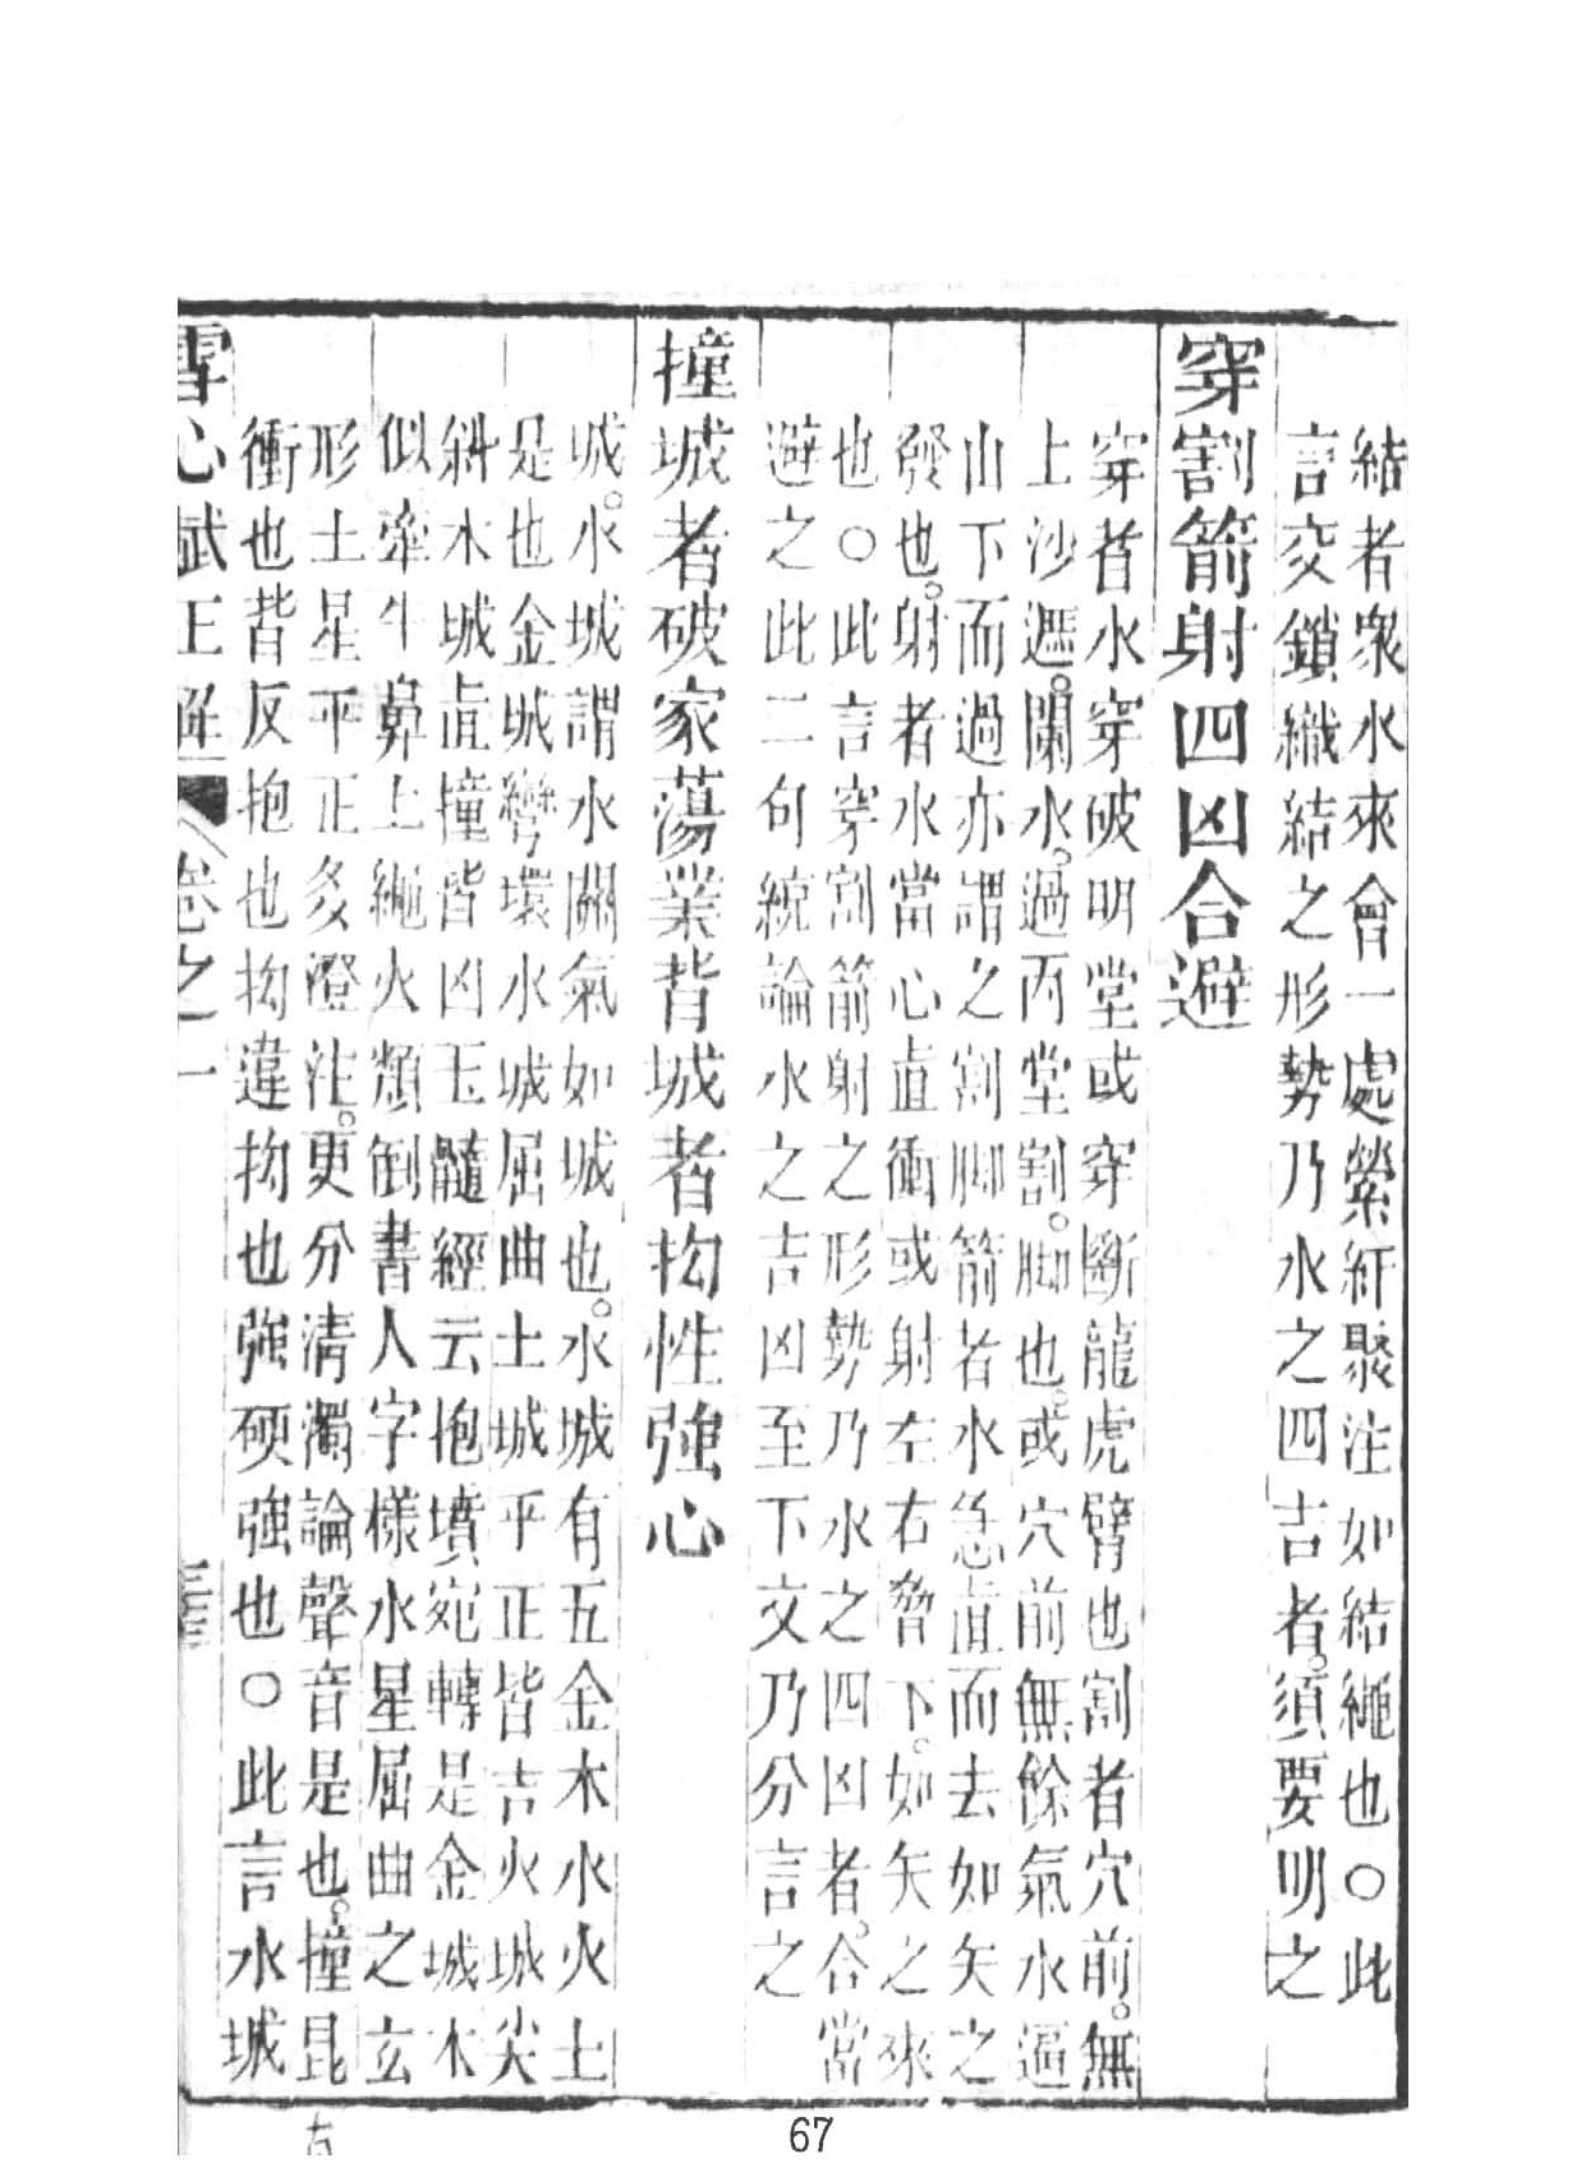 結者衆水來會一處縈紆聚注如結繩也○此
言交鎖織結之形勢乃水之四吉者。須要明之
穿割箭射四凶合避
穿者水穿破明堂或穿斷龍虎臂也割者穴前。無
上沙遮。闌水。過丙堂割。脚也。或穴前無餘氣水逼
山下而過亦謂之割脚箭者水急直而去如矢之
發也。射者水當心直衝或射左右脅下。如矢之來
也○此言穿割箭射之形勢乃水之四凶者。合當
避之此二句統論水之吉凶至下文乃分言之
撞城者破家蕩業背城者抝性強心
城。水城謂水關氣如城也。水城有五金木水火土
是也金城彎環水城屈曲土城平正皆吉火城尖
斜木城直撞皆凶玉髓經云抱墳宛轉是金城木
似牽牛鼻上繩火類倒書人字樣水星屈曲之玄
形土星平正多澄注。更分清濁論聲音是也。撞昆
衝也背反抱也抝違抝也強硬強也○此言水城
雪心賦正解 卷之一
67